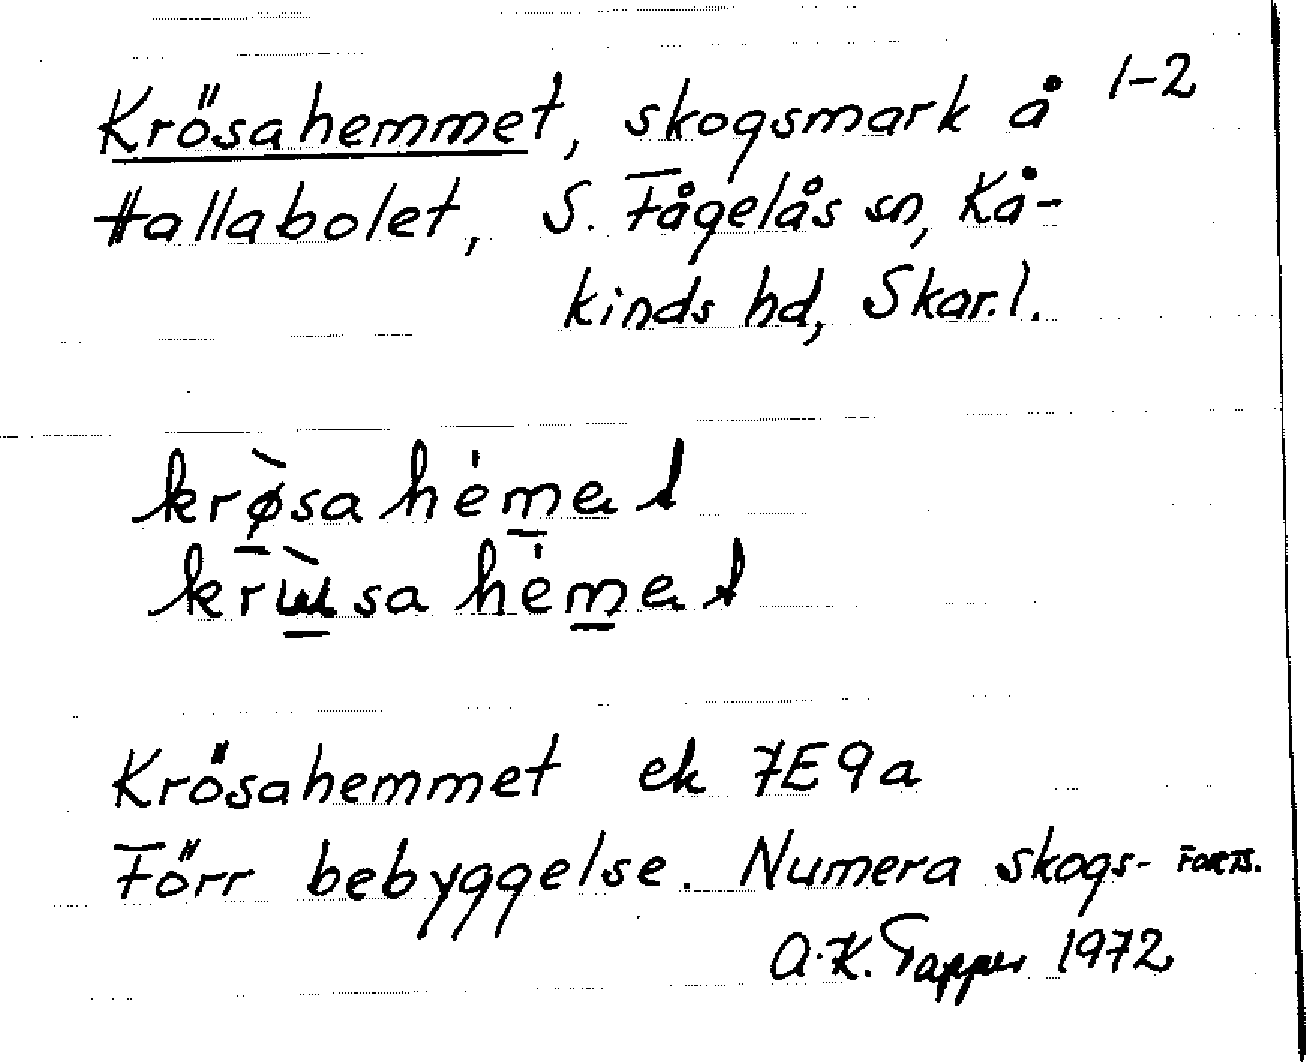 Krösahemmet, skogsmark å 1-2
Hallabolet, S. Fågelås sn, Kå-
kinds hd, Skar.l.
krø̀sahémet
krùsahémet
Krösahemmet ek 7E9a
Förr bebyggelse. Numera skogs- FORTS.
A.K. Tapper 1972